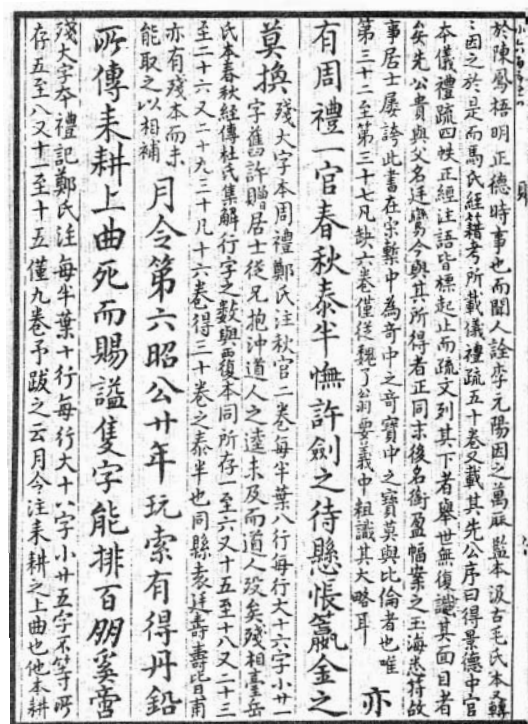 於陳鳳梧明正德時事也而聞人詮李元陽因之萬厯監本汲古毛氏本又轉
〻因之於是而馬氏經籍考所載儀禮疏五十卷又載其先公序曰得景德中官
本儀禮疏四帙正經注語皆標起止而疏文列其下者舉世無復識其面目者
矣先公貴與父名廷鸞今與其所得者正同末後名銜盈幅案之玉海悉符故
事居士屢誇此書在宋槧中為奇中之奇寶中之寶莫與比倫者也唯
第三十二至第三十七凡缺六卷僅從魏了翁要義中粗識其大略耳
亦
有周禮一官春秋泰半憮許劍之待懸悵籯金之
莫換
殘大字本周禮鄭氏注秋官二卷每半葉八行每行大十六字小廿一
字舊許贈居士從兄抱沖道人之蘧未及而道人歿矣殘相臺岳
氏本春秋經傳杜氏集解行字之數與覆本同所存一至六又十五至十八又二十三
至二十六又二十九三十凡十六卷得三十卷之泰半也同縣袁廷壽壽皆甫
亦有殘本而未
能取之以相補
月令第六昭公廿年玩索有得丹鉛
所傳耒耕上曲死而賜謚隻字能排百朋奚啻
殘大字本禮記鄭氏注每半葉十行每行大十八字小廿五字不等所
存五至八又十一至十五僅九卷予跋之云月令注耒耕之上曲也他本耕